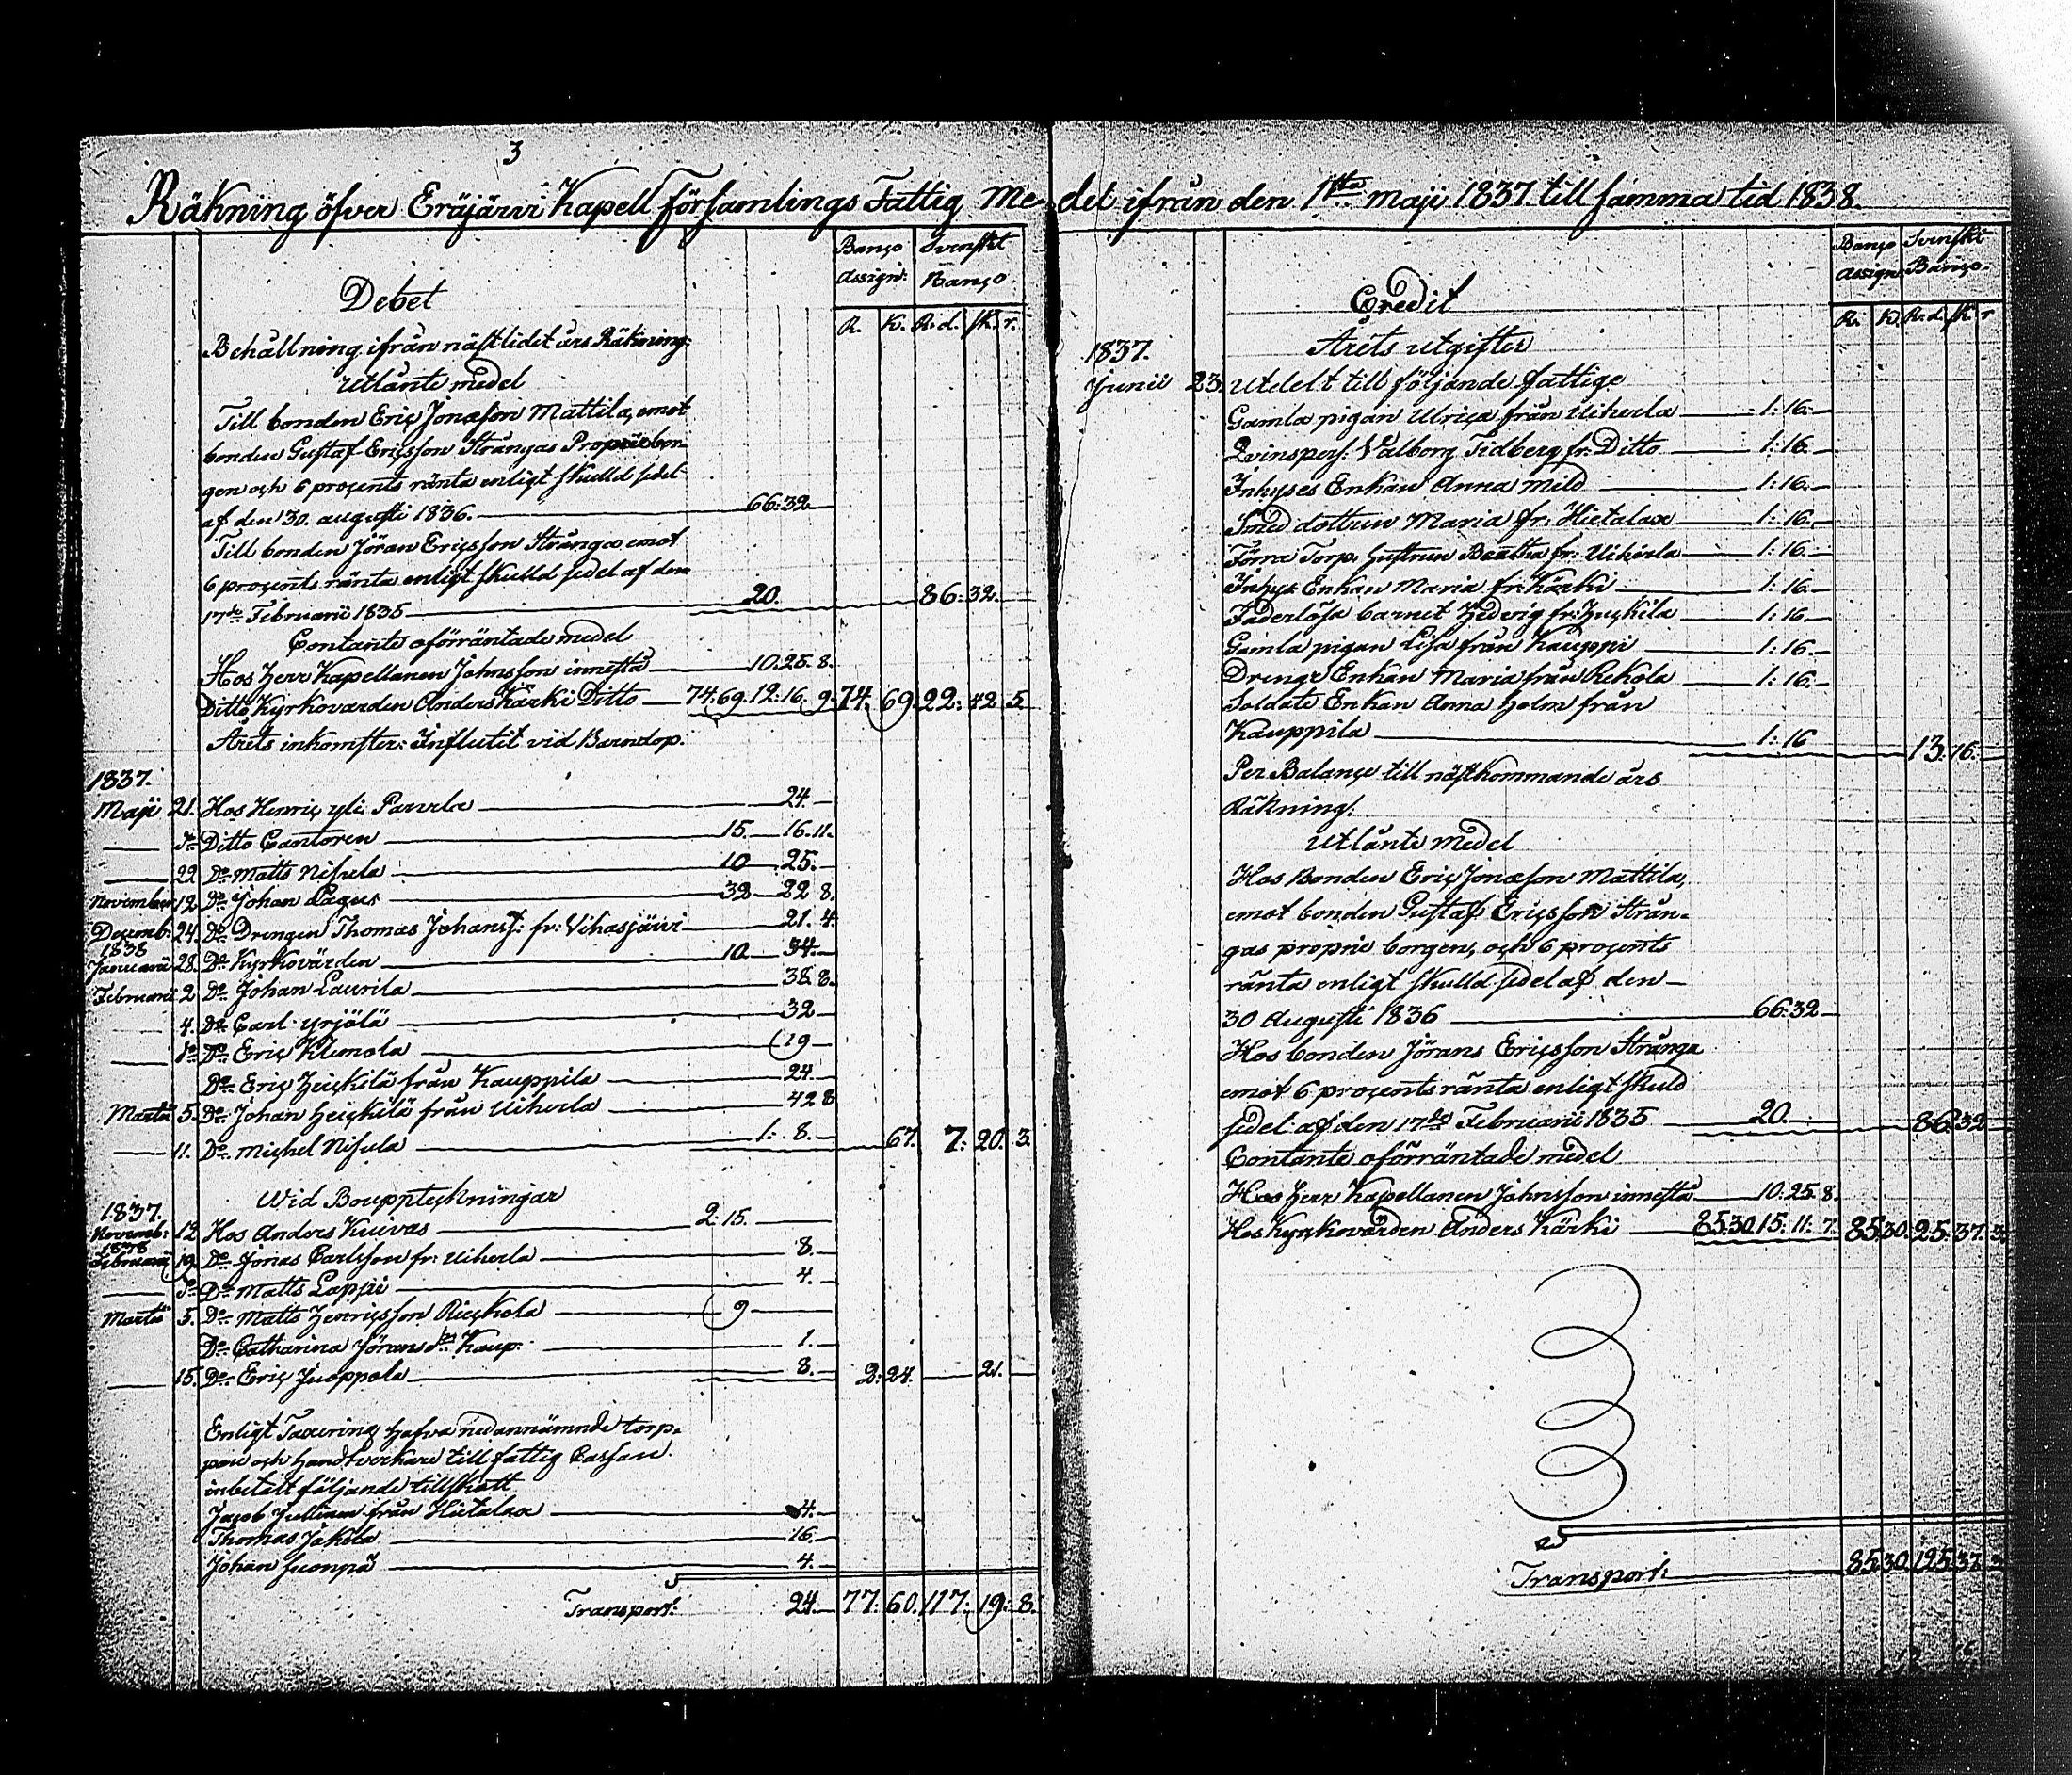 3
Räkning öfver Eräjärvi Kapell Församlings Fattig Me-del ifrån den 1sta maji 1837 till samma tid 1838.
Banco Assign: Svenskt Banco
R. K. R:d. sk. r.
Debet
Behållning ifrån nästlidet års Räkning:
Utlånte medel
Till bonden Eric Jonasson Mattila, emot
bonden Gustaf Ericsson Strångas Proprie bor-
gen och 6 procents ränta enligt skulld sedel
af den 30 augusti 1836. 66:32
Till bonden Jöran Ericsson Strånga emot
6 procents ränta enligt skulld sedel af den
17de Februarii 1835 20. 86:32.
Contante oförräntade medel
Hos Herr Kapellanen Johnsson innestå 10.25.8.
Ditto Kyrkovärden Anders Kärki Ditto 74.69.12:16.9. 74.69.22:42.5.
Årets inkomster: Influtit vid Barndop.
1837.
Maji 21. Hos Henric yli Paavola 24.
Ditto Cantoren 15. 16.11.
22 Do Matts Nisula 10 25.
November 12 Do Johan Lagus 32 22 8.
Decemb: 24. Do Drengen Thomas Johanss: fr: Vihasjärvi 21.4.
1838
Januarii 28. Do Kyrkovärden 10 34.
Februarii 2 Do Johan Laurila 38 8.
4. Do Carl Yrjölä 32
Do Eric Klemola 19
Do Eric Heickilä från Kauppila 24
Martii 5. Do Johan Heickilä från Uiherla 42 8
11. Do Michel Nisula 1: 8. 67. 7: 20. 3.
Wid Bouppteckningar
1837.
Novemb: 12 Hos Anders Kuivas 2:15.
1838
Februarii 19. Do Jonas Carlsson fr: Uiherla 8.
Do Matts Lappi 4.
Martii 5. Do Matts Henricsson Rickola 9
Do Catharina Jörans dr Kaup. 1.
15. Do Eric Juoppola 8. 2:24. 21.
Enligt Taxering hafva nedannämnde torp-
pare och handtverkare till fattig Cassan
inbetalt följande tillskott
Jacob Jullinen från Hietalax 4.
Thomas Jokela 16.
Johan Suonpä 4.
Transport: 24. 77:60.117:19:8.
Banco Assign: Svenskt Banco.
R. K. R:d. sk. r
Credit
1837. Årets utgifter
Junii 23. Utdelt till följande fattige
Gamla pigan Ulrica från Uiherla 1:16.
Qvinspers: Valborg Tidberg fr: Ditto 1:16.
Inhyses Enkan Anna Mild 1:16.
Smed dottren Maria fr: Hietalax 1:16.
Förra Torp: hustrun Beatha fr: Uiherla 1:16.
Inhys Enkan Maria fr: Kärki 1:16.
Faderlösa barnet Hedvig fr: Huckila 1:16.
Gamla pigan Lisa från Kauppi 1:16.
Drengs Enkan Maria från Rekola 1:16.
Soldats Enkan Anna Holm från
Kauppila 1:16 13:16.
Per Balance till nästkommande års
Räkning:
Utlånte medel
Hos Bonden Eric Jonasson Mattila,
emot bonden Gustaf Ericsson Strån-
gas proprie borgen, och 6 procents
ränta enligt skulld sedel af den
30 Augusti 1836 66:32
Hos bonden Jörans Ericsson Strånga
emot 6 procents ränta enligt skuld
sedel af den 17de Februarii 1835 20. 86:32
Contante oförräntade medel
Hos Herr Kapellanen Johnsson innestå 10.25.8.
Hos Kyrkovärden Anders Kärki 85.30.15:11:7. 85.30.25:37.3.
Transport: 85.30.125.37.3